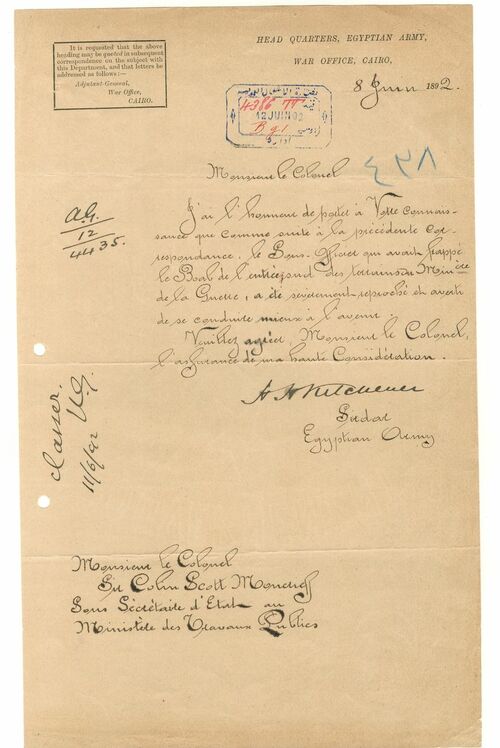 It is requested that the above
heading may be quoted in subsequent
correspondence on the subject with
this Department, and that letters be
addressed as follows:—
Adjutant-General,
War Office,
CAIRO.
HEAD QUARTERS, EGYPTIAN ARMY,
WAR OFFICE, CAIRO,
8 Juin 1892.
4386
12 JUIN 92
٤٣٨
A.G.
12
4435.
Monsieur le Colonel
J'ai l'honneur de porter à Votre connais-
sance que comme suite à la précédente cor-
respondance, le Sous-Officier qui avait frappé
le Boab de l'entrée des terrains du Minère
de la Guerre, a été sévèrement reproché et averti
de se conduire mieux à l'avenir.
Veuillez agréer, Monsieur le Colonel,
l'assurance de ma haute Considération.
H H Kitchener
Sirdar
Egyptian Army
Classer.
11/6/92
Monsieur le Colonel
Sir Colin Scott Moncrieff
Sous Sécrétaire d'Etat au
Ministère des Travaux Publics